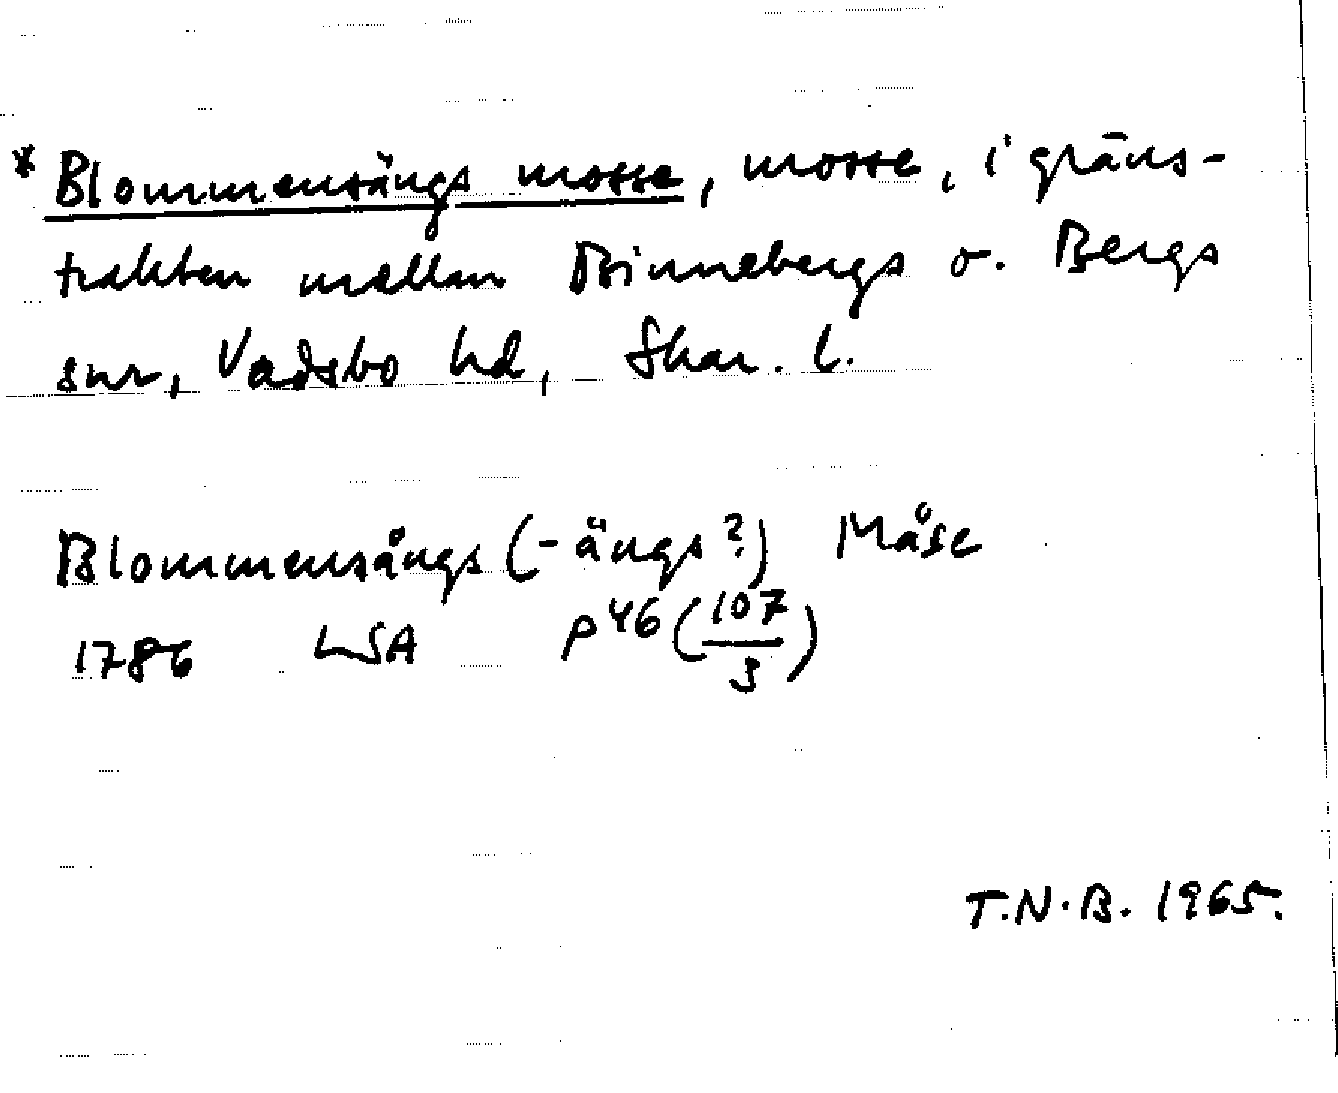 * Blommensängs mosse, mosse, i gräns-
trakten mellan Binnebergs o. Bergs
snr, Vadsbo hd, Skar. l.
Blommensångs (-ängs?) Måse
1786 LSA P46 (107/3)
T.N.B. 1965.